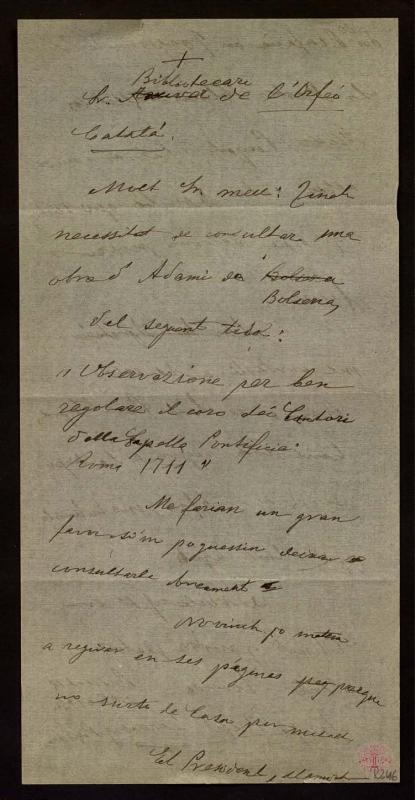 +
Bibliotecari
Sr. de L'Orfeó
Catalá.
Molt Sr meu: Tinch
necessitat de consultar una
obra d' Adami da
Bolsena,
del seguent titol:
" Observazione per ben
regolare il coro dei Cantori
della Capella Pontificia.
Roma 1711 "
Me farian un gran
favor si'm poguessin deixar
consultarla breument
No vinch jo mateix
a regirar en ses pagines perque
no surto de Casa per
El President,
R246